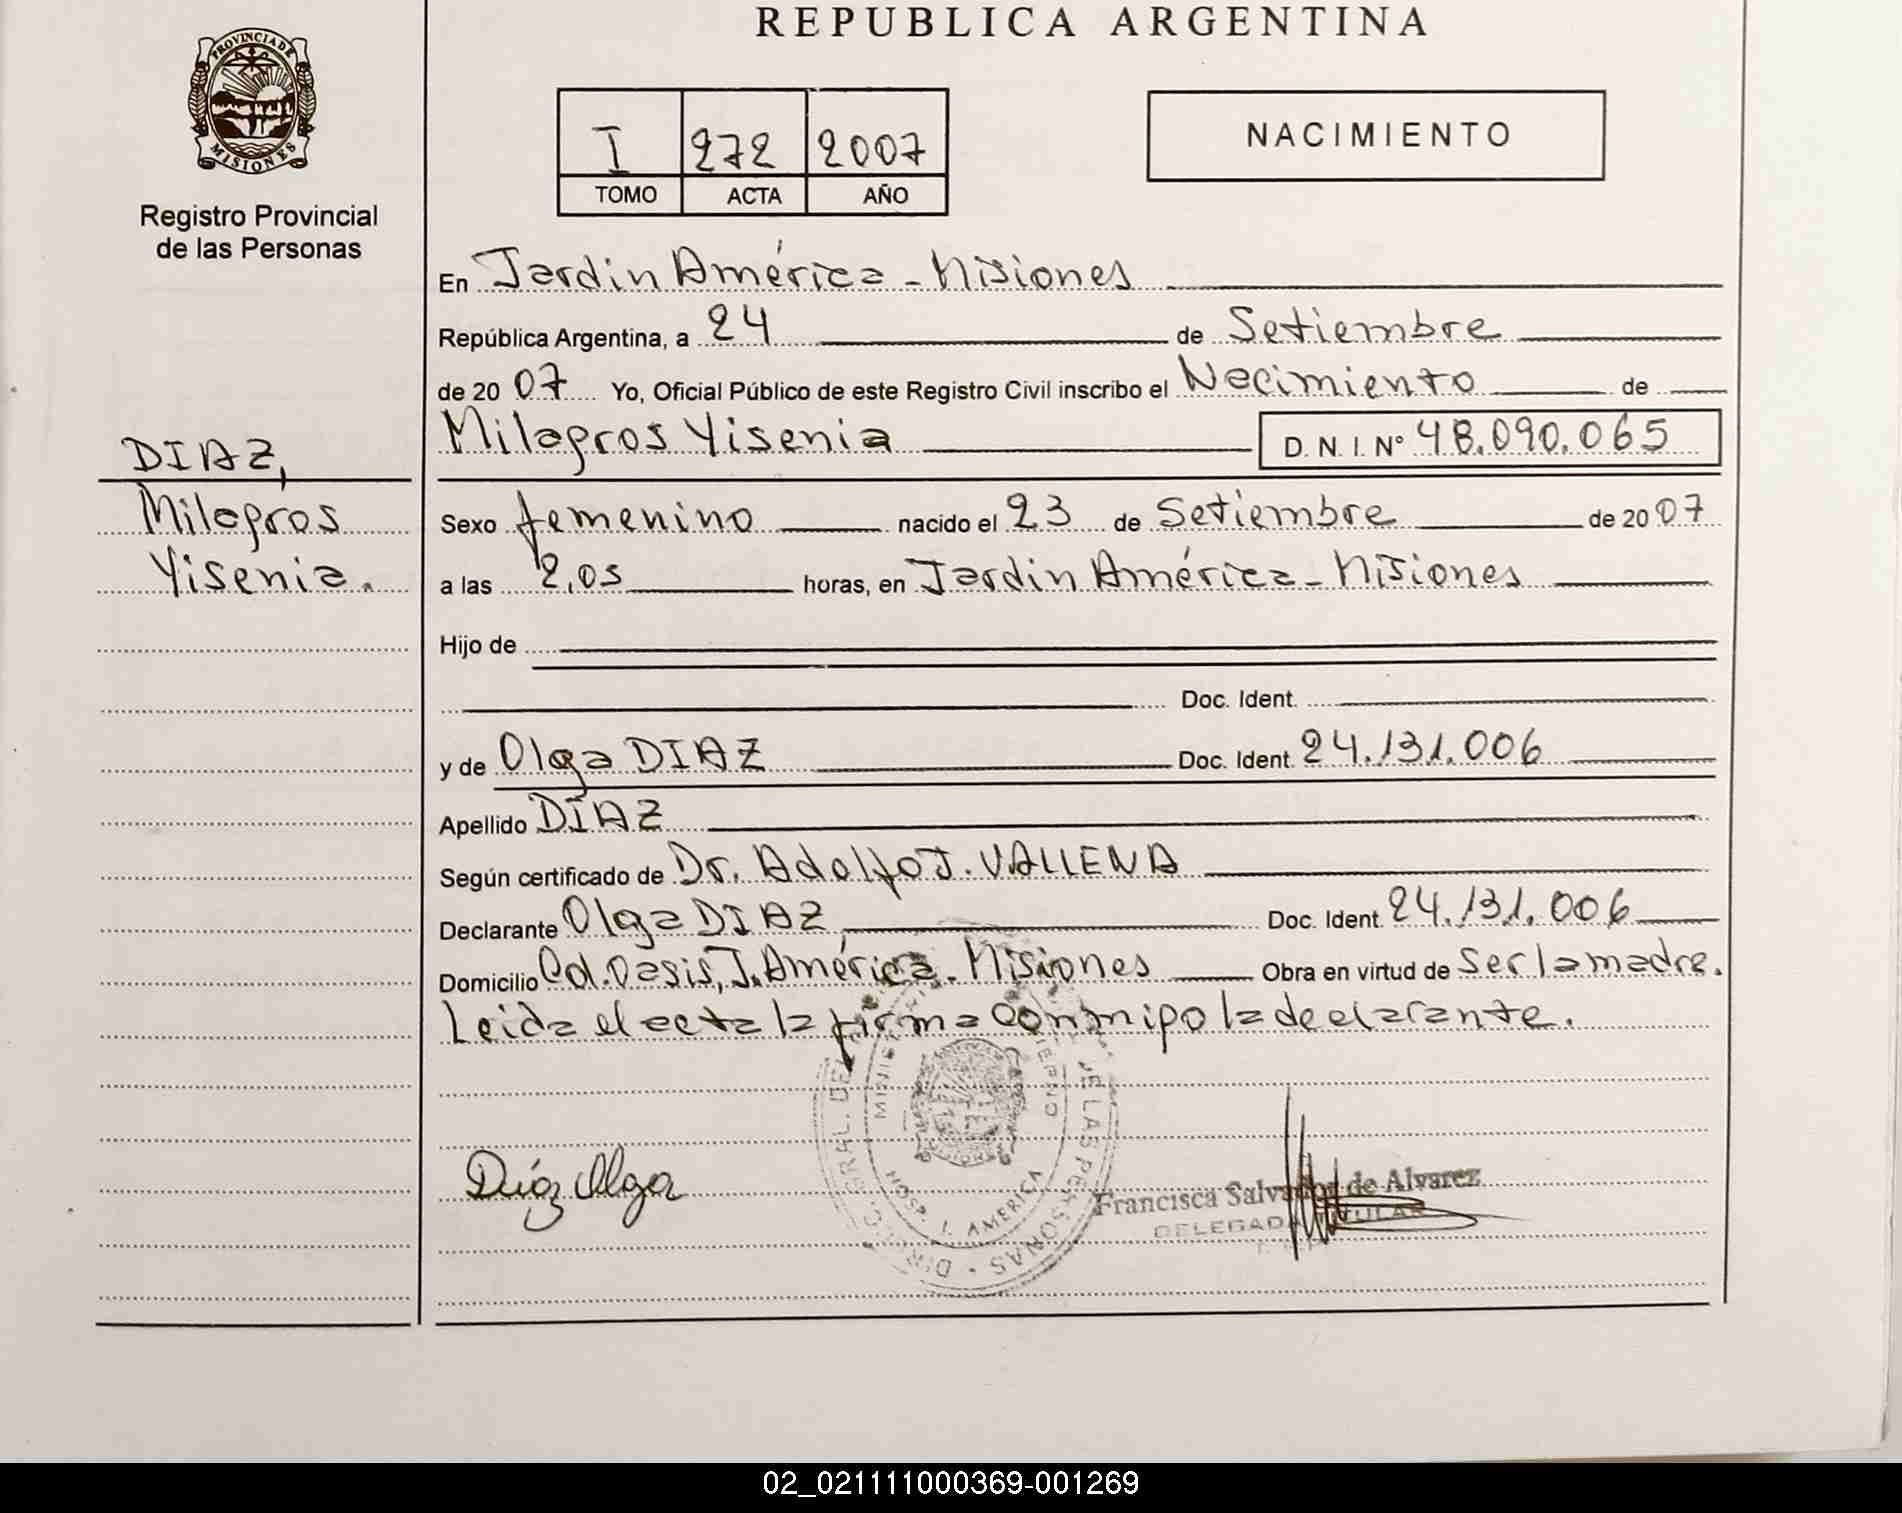 REPUBLICA ARGENTINA
PROVINCIA DE
MISIONES
Registro Provincial
de las Personas
I 272 2007
TOMO ACTA AÑO
NACIMIENTO
En Jardin América - Misiones
República Argentina, a 24 de Setiembre
de 2007 Yo, Oficial Público de este Registro Civil inscribo el Nacimiento de
Milagros Yisenia D. N. I. Nº 48.090.065
DIAZ,
Milagros
Yisenia.
Sexo femenino nacido el 23 de Setiembre de 2007
a las 2,05 horas, en Jardin América - Misiones
Hijo de
Doc. Ident.
y de Olga DIAZ Doc. Ident. 24.131.006
Apellido DIAZ
Según certificado de Dr. Adolfo J. VALLENA
Declarante Olga DIAZ Doc. Ident. 24.131.006
Domicilio Cd. Oasis, J. América - Misiones Obra en virtud de ser la madre.
Leida el acta la firma conmipo la declarante.
Diaz Olga
HOSP. J. AMERICA
DE LAS PERSONAS
Francisca Salvador de Alvarez
DELEGADA TITULAR
02_021111000369-001269